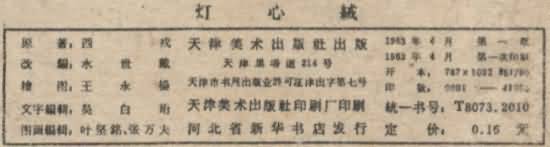 灯心絨
原著：西戎
改編：水世戴
繪图：王永揚
文字編輯：吳白珩
图画編輯：叶坚銘、张万夫
天津美术出版社出版
天津黑塔道214号
天津市书刊出版业許可証津出字第七号
天津美术出版社印刷厂印刷
河北省新华书店发行
1963年4月第一版
1963年4月第一次印刷
开本：787×1092
印数：0001—
統一书号：T8073.2010
定价：0.16元